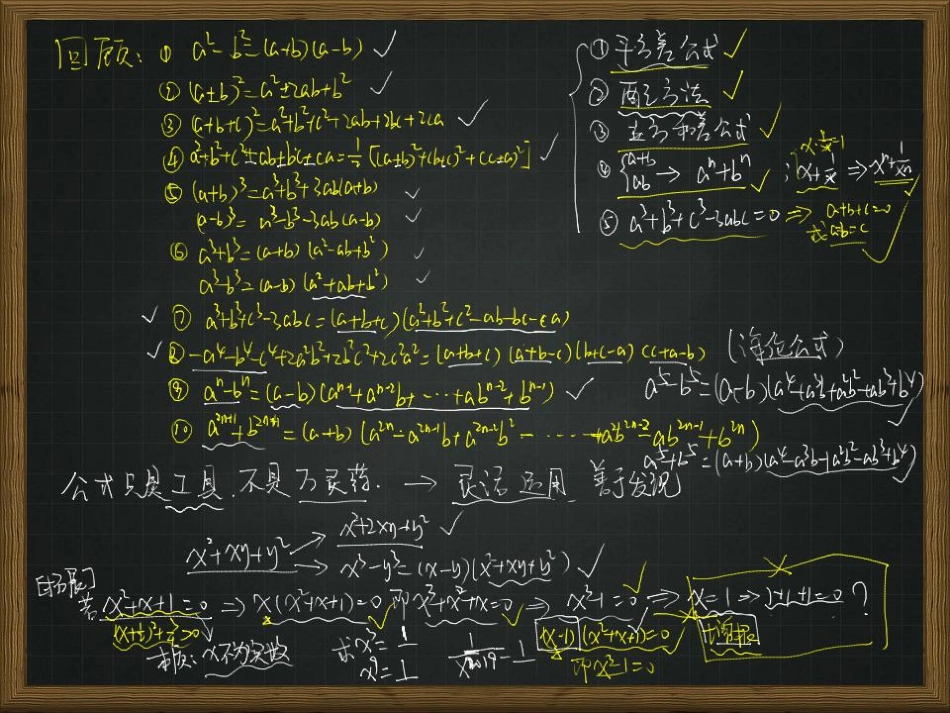 回顾: ① a²-b²=(a+b)(a-b) ✓
② (a±b)²=a²±2ab+b² ✓
③ (a+b+c)²=a²+b²+c²+2ab+2bc+2ca ✓
④ a²+b²+c²±ab±bc±ca=½[(a±b)²+(b±c)²+(c±a)²] ✓
⑤ (a+b)³=a³+b³+3ab(a+b) ✓
(a-b)³=a³-b³-3ab(a-b) ✓
⑥ a³+b³=(a+b)(a²-ab+b²) ✓
a³-b³=(a-b)(a²+ab+b²) ✓
✓ ⑦ a³+b³+c³-3abc=(a+b+c)(a²+b²+c²-ab-bc-ca)
✓ ⑧ -a⁴-b⁴-c⁴+2a²b²+2b²c²+2c²a²=(a+b+c)(a+b-c)(b+c-a)(c+a-b) (海伦公式)
⑨ aⁿ-bⁿ=(a-b)(aⁿ⁻¹+aⁿ⁻²b+⋯+abⁿ⁻²+bⁿ⁻¹) ✓
⑩ a²ⁿ⁺¹+b²ⁿ⁺¹=(a+b)(a²ⁿ-a²ⁿ⁻¹b+a²ⁿ⁻²b²-⋯+a²b²ⁿ⁻²-ab²ⁿ⁻¹+b²ⁿ)
① 平方差公式 ✓
② 配方法 ✓
③ 立方和差公式 ✓
④ {a+b ab → aⁿ+bⁿ ✓
x·1/x=1
; x+1/x ⇒ xⁿ+1/xⁿ ✓
⑤ a³+b³+c³-3abc=0 ⇒ a+b+c=0
或 a=b=c
a⁵-b⁵=(a-b)(a⁴+a³b+a²b²+ab³+b⁴)
a⁵+b⁵=(a+b)(a⁴-a³b+a²b²-ab³+b⁴)
公式只是工具,不是万灵药. → 灵活运用 善于发现
x²+xy+y² → x²+2xy+y² ✓
→ x³-y³=(x-y)(x²+xy+y²) ✓
[拓展]
若 x²+x+1=0 ⇒ x(x²+x+1)=0 即 x³+x²+x=0 ⇒ x³-1=0 ⇒ x=1 ⇒ 1+1+1=0?
(x+½)²+¾>0
x不为实数
求 x³=1
x⁹=1
(x-1)(x²+x+1)=0
即x³-1=0